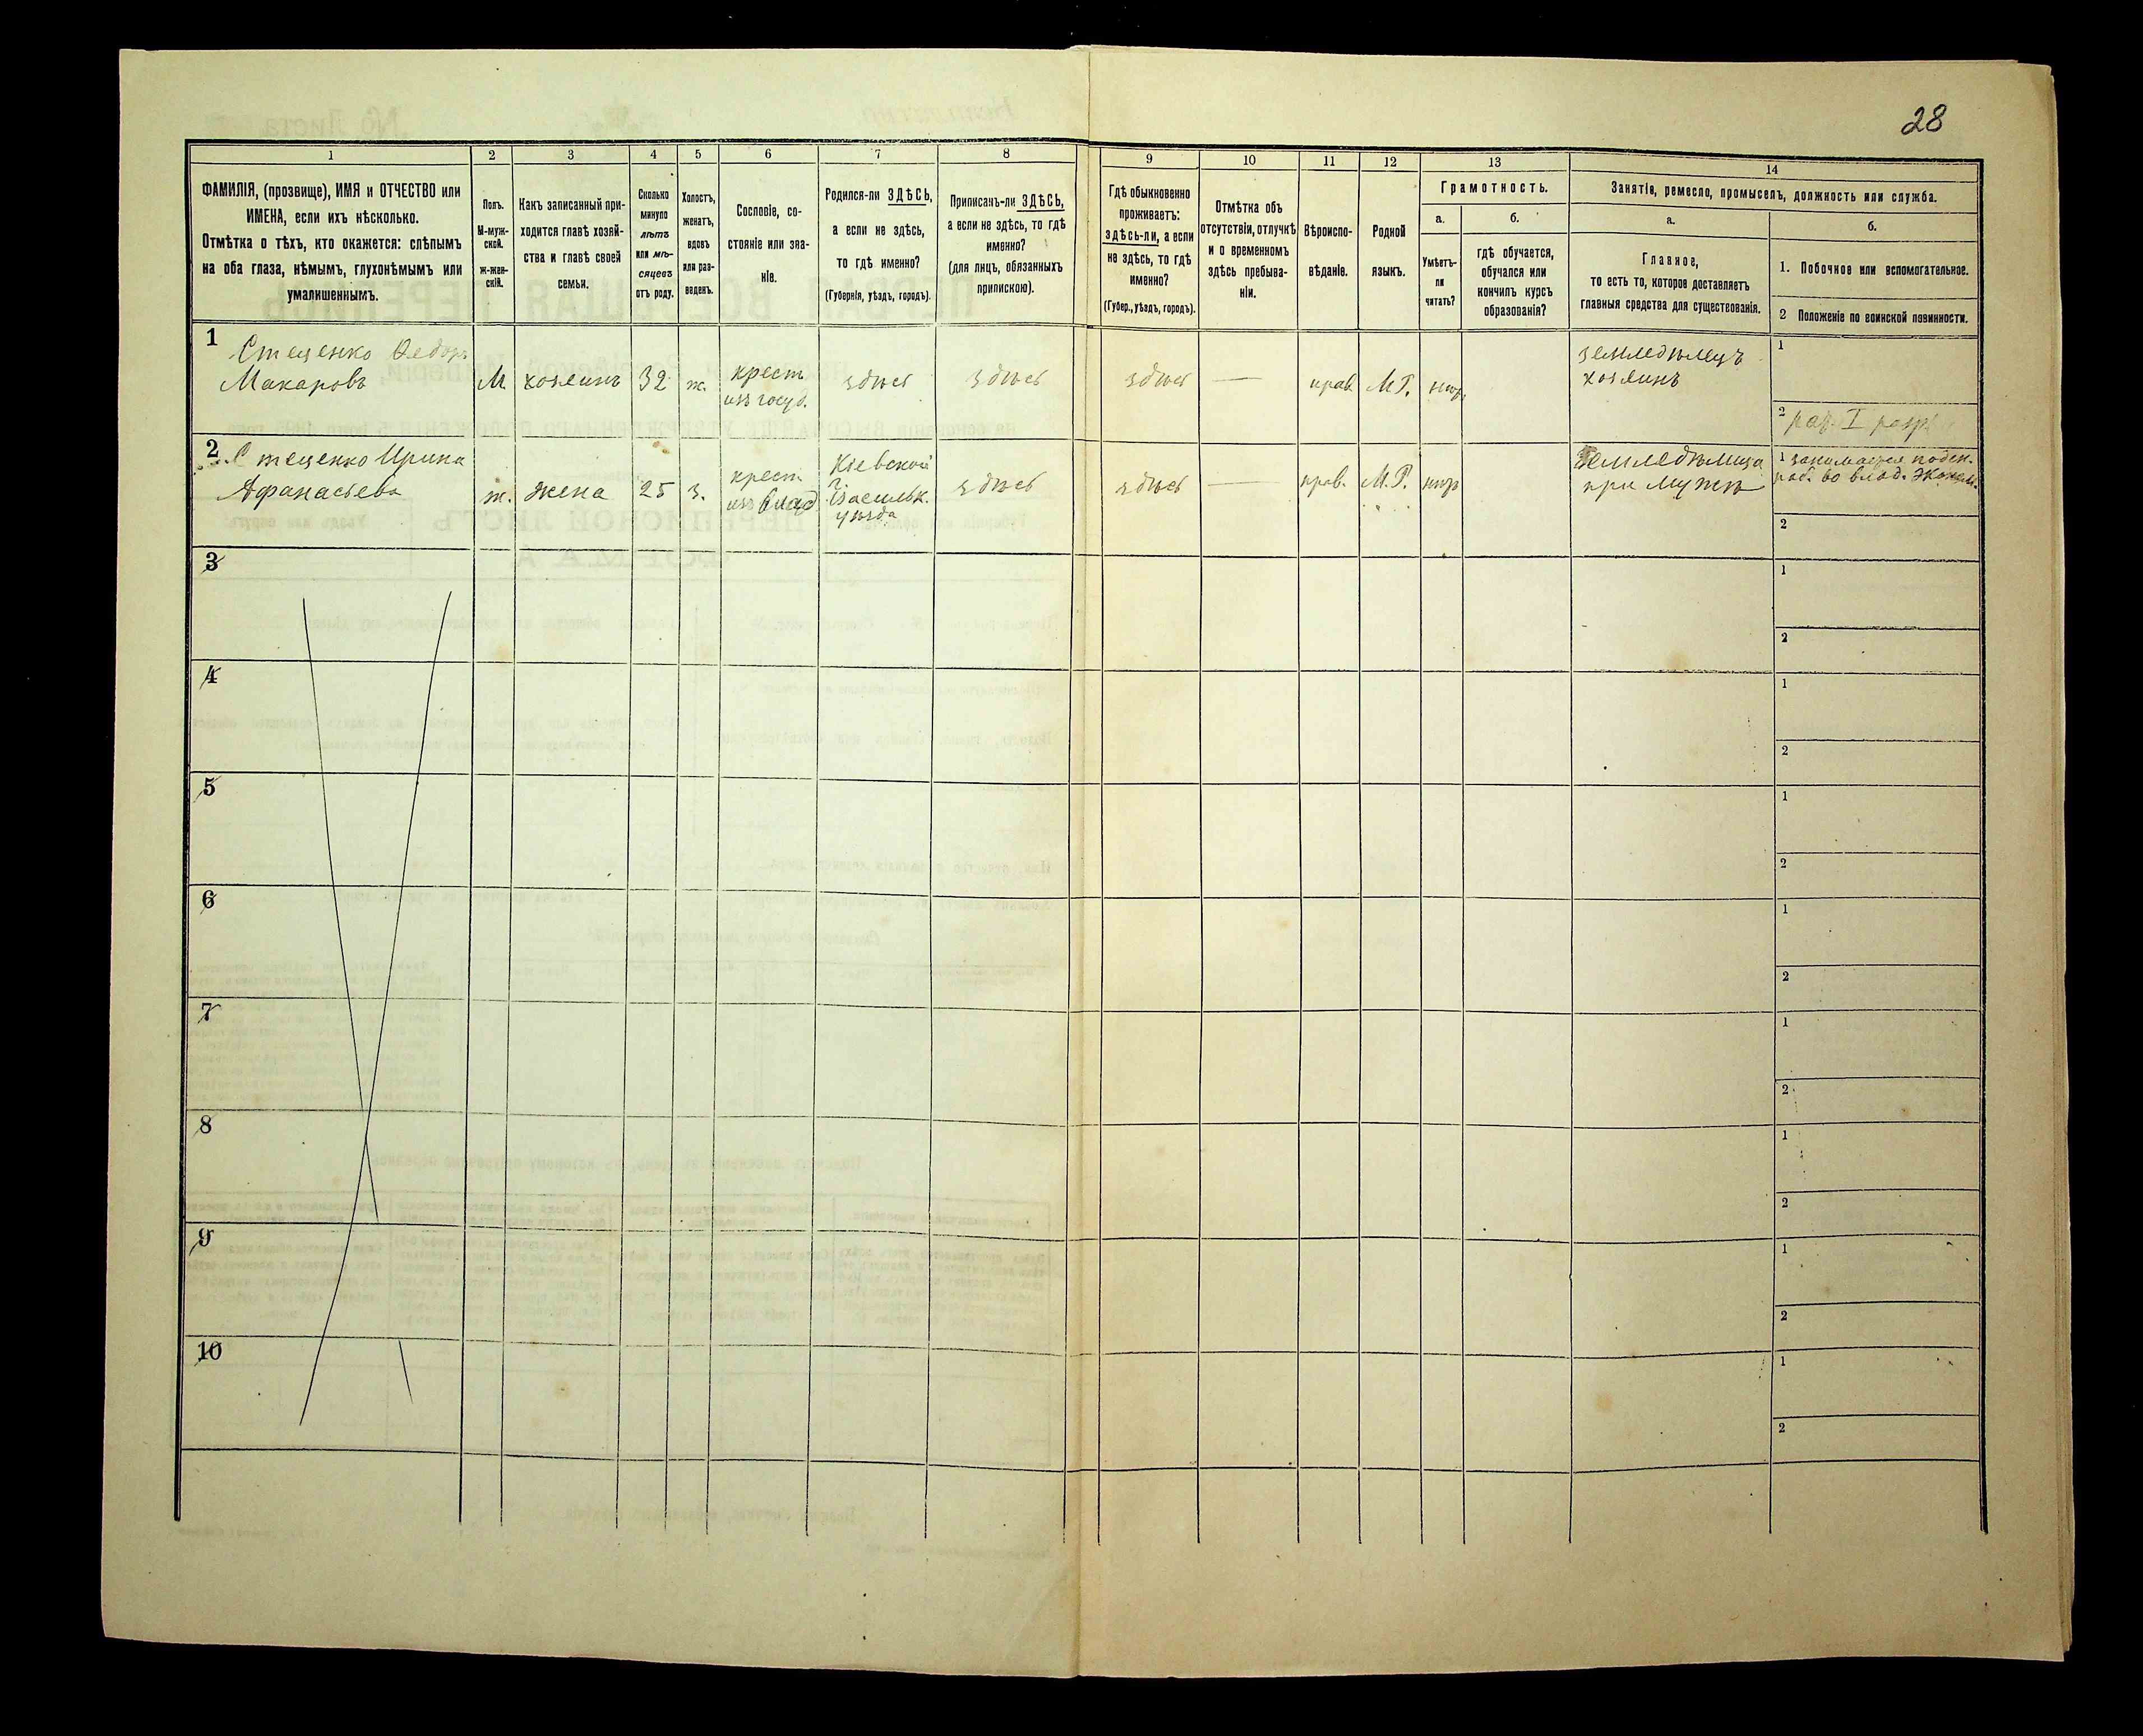 28
1
2
3
4
5
6
7
8
9
10
11
12
13
14
ФАМИЛІЯ, (прозвище), ИМЯ и ОТЧЕСТВО или
ИМЕНА, если ихъ нѣсколько.
Отмѣтка о тѣхъ, кто окажется: слѣпымъ
на оба глаза, нѣмымъ, глухонѣмымъ или
умалишеннымъ.
Полъ.
М-муж-
ской.
ж-жен-
скій.
Какъ записанный при-
ходится главѣ хозяй-
ства и главѣ своей
семьи.
Сколько
минуло
лѣтъ
или мѣ-
сяцевъ
отъ роду.
Холостъ,
женатъ,
вдовъ
или раз-
веденъ.
Сословіе, со-
стояніе или зва-
ніе.
Родился-ли ЗДѢСЬ,
а если не здѣсь,
то гдѣ именно?
(Губернія, уѣздъ, городъ).
Приписанъ-ли ЗДѢСЬ,
а если не здѣсь, то гдѣ
именно?
(для лицъ, обязанныхъ
припискою).
Гдѣ обыкновенно
проживаетъ:
здѣсь-ли, а если
не здѣсь, то гдѣ
именно?
(Губер., уѣздъ, городъ).
Отмѣтка объ
отсутствіи, отлучкѣ
и о временномъ
здѣсь пребыва-
ніи.
Вѣроиспо-
вѣданіе.
Родной
языкъ.
Грамотность.
а.
б.
Умѣетъ-
ли
читать?
гдѣ обучается,
обучался или
кончилъ курсъ
образованія?
Занятіе, ремесло, промыселъ, должность или служба.
а.
б.
Главное,
то есть то, которое доставляетъ
главныя средства для существованія.
1. Побочное или вспомогательное.
2 Положеніе по воинской повинности.
1
Стеценко Федоръ
Макаровъ
М
хозяинъ
32
ж.
крест
изъ госуд.
здѣсь
здѣсь
здѣсь
—
прав
М.Р.
нѣтъ
земледѣлецъ
хозяинъ
1
2 рат. I разр.
2
Стеценко Ирина
Афанасьева
ж.
жена
25
з.
крест
изъ влад
Кіевской
г. Васильк.
уѣзда
здѣсь
здѣсь
—
прав.
М.Р.
нѣтъ
Земледѣлица
при мужѣ
1 занимается поден.
раб. во влад. эконом.
2
3
1
2
4
1
2
5
1
2
6
1
2
7
1
2
8
1
2
9
1
2
10
1
2